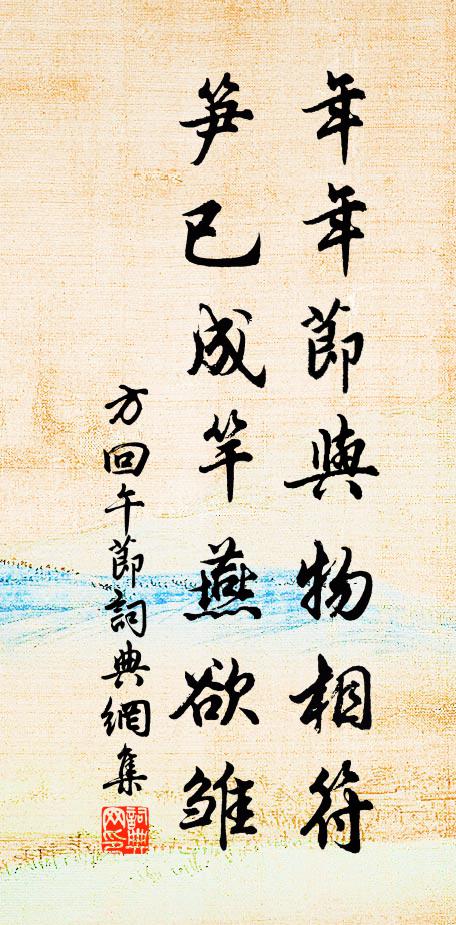 年年節與物相符
笋已成竿燕欲雏
方回午節詞典網集
詞典網印